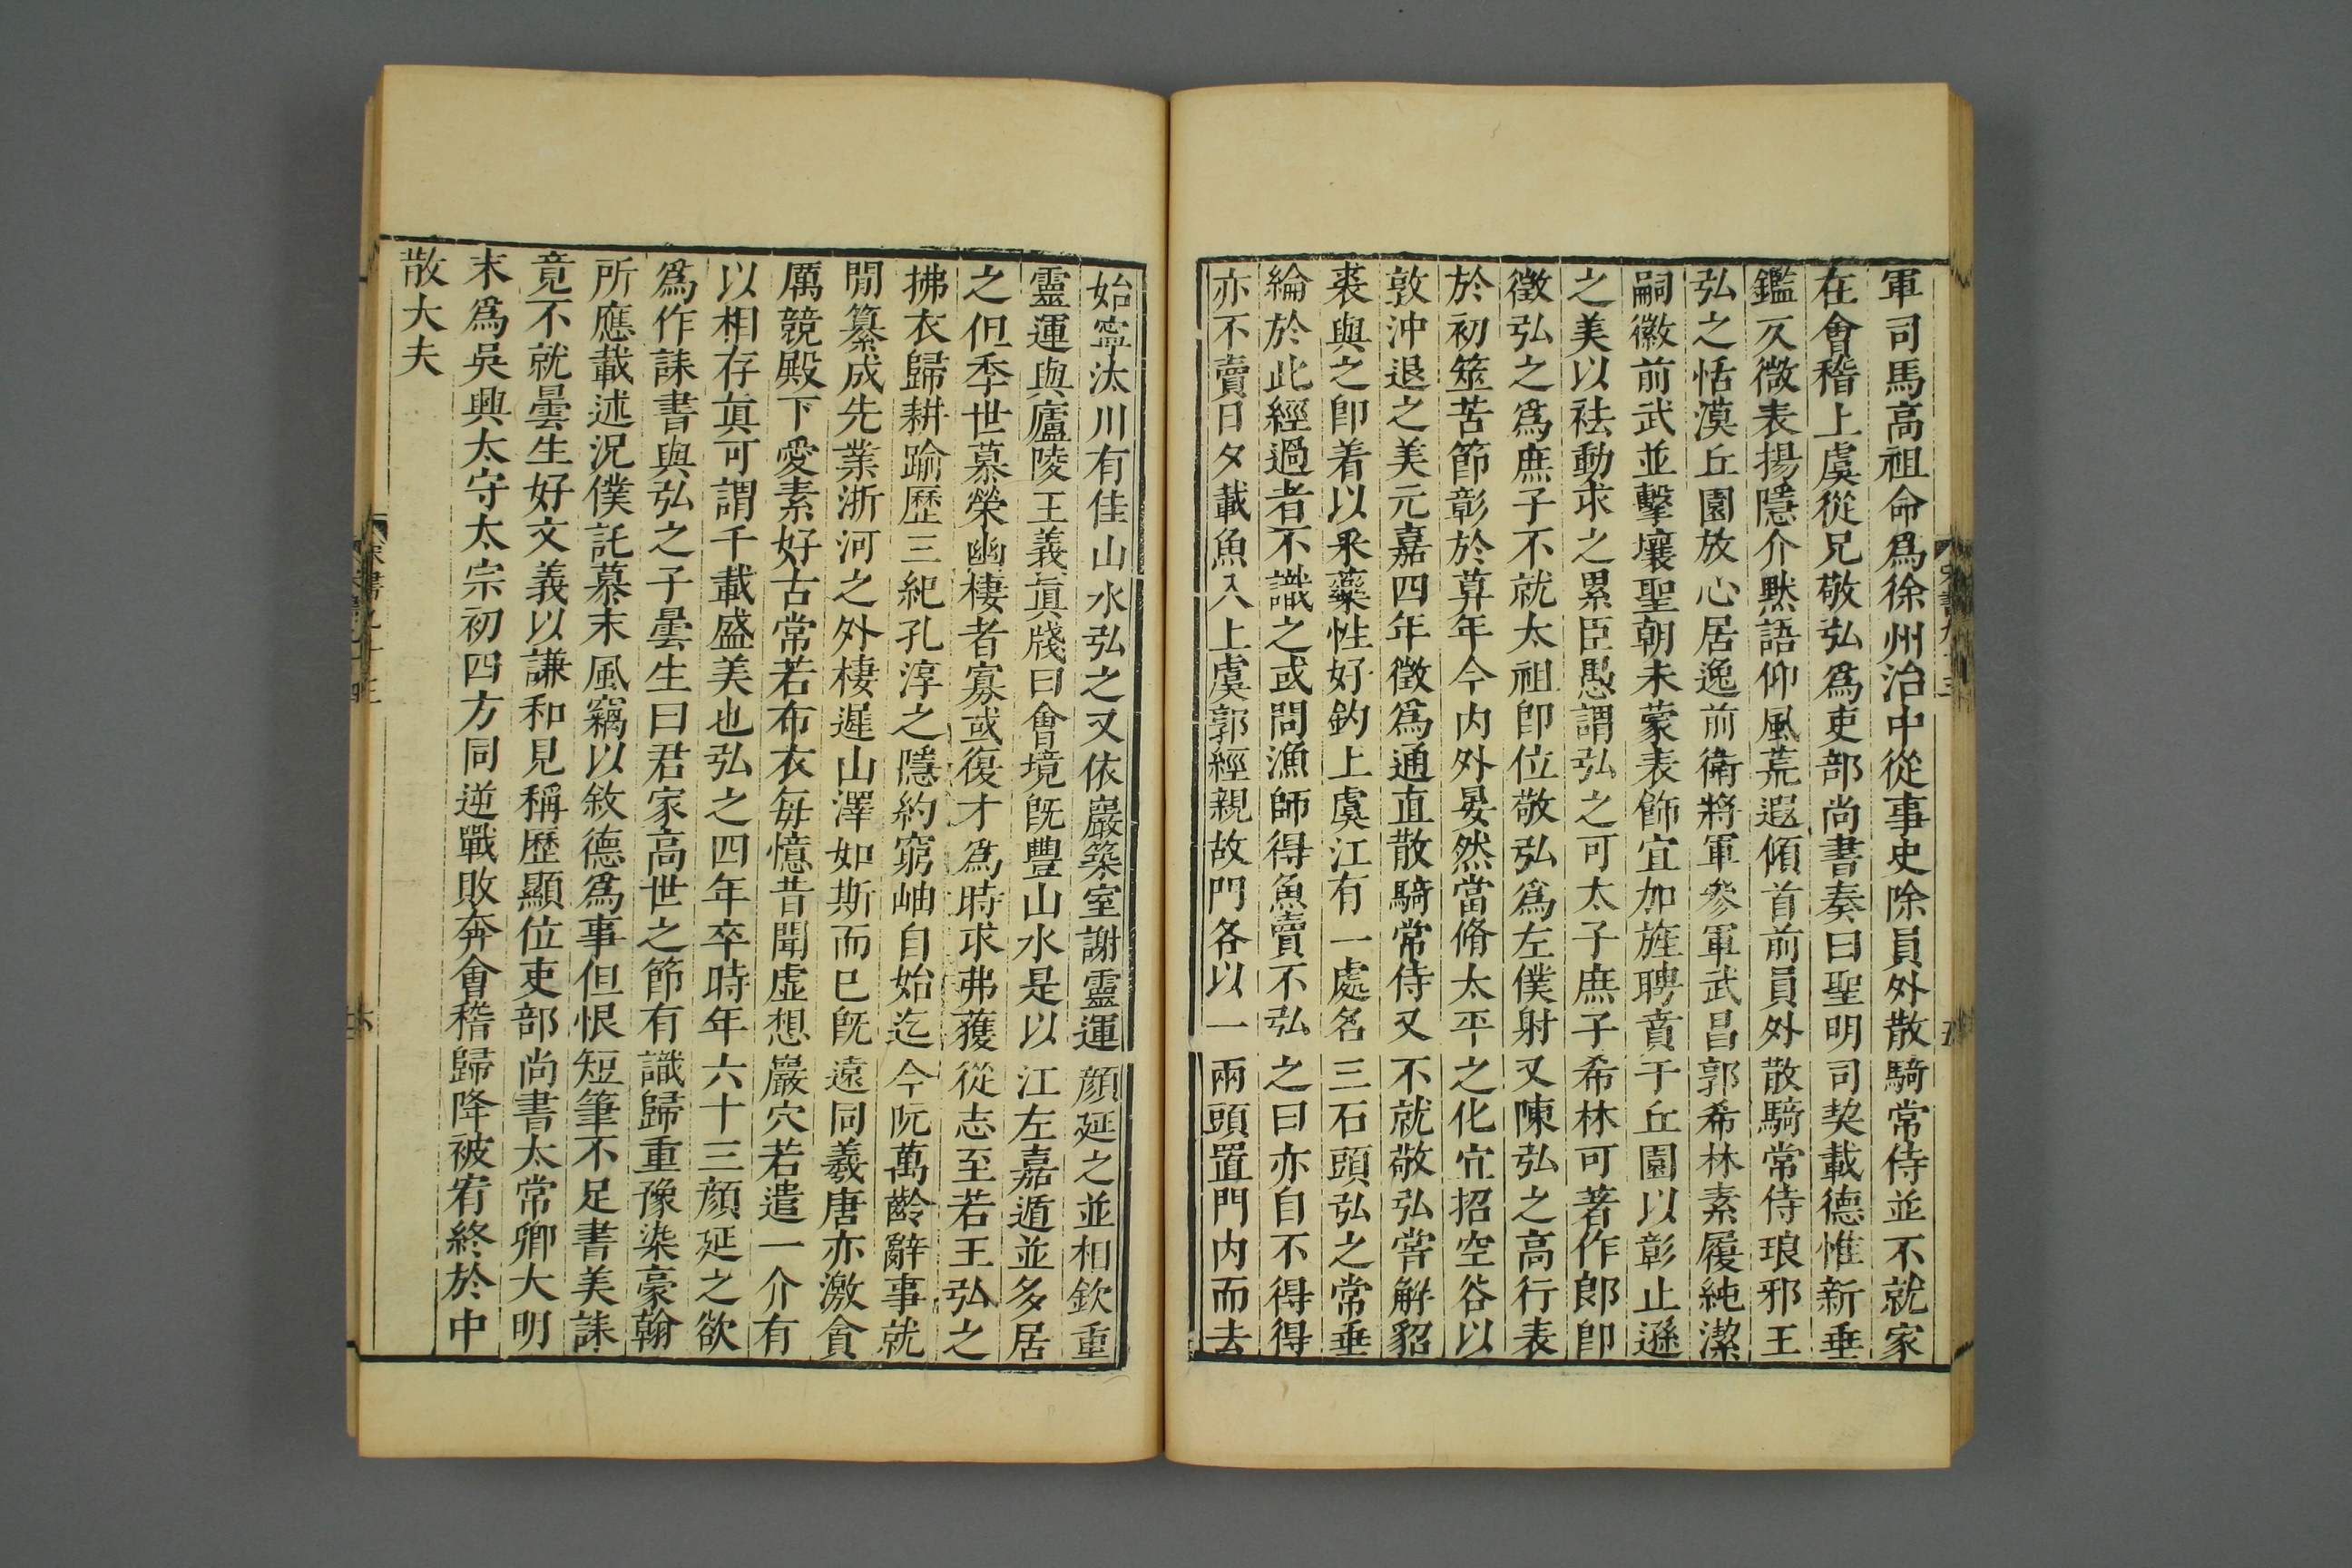 軍司馬高祖命爲徐州治中從事史除員外散騎常侍並不就家
在會稽上虞從兄敬弘爲吏部尚書奏曰聖明司契載德惟新垂
鑑仄微表揚隱介默語仰風荒遐傾首前員外散騎常侍琅邪王
弘之恬漠丘園放心居逸前衛將軍參軍武昌郭希林素履純潔
嗣徽前武並擊壤聖朝未蒙表飾宜加旌聘賁于丘園以彰止遜
之美以祛動求之累臣愚謂弘之可太子庶子希林可著作郎即
徵弘之爲庶子不就太祖即位敬弘爲左僕射又陳弘之高行表
於初筮苦節彰於莫年今内外晏然當脩太平之化宜招空谷以
敦沖退之美元嘉四年徵爲通直散騎常侍又不就敬弘甞解貂
裘與之即着以采藥性好釣上虞江有一處名三石頭弘之常垂
綸於此經過者不識之或問漁師得魚賣不弘之曰亦自不得得
亦不賣日夕載魚入上虞郭經親故門各以一兩頭置門内而去
始寧汰川有佳山水弘之又依巖築室謝靈運顔延之並相欽重
靈運與廬陵王義眞牋曰會境旣豐山水是以江左嘉遁並多居
之但季世慕榮幽棲者寡或復才爲時求弗獲從志至若王弘之
拂衣歸耕踰歷三紀孔淳之隱約窮岫自始迄今阮萬齡辭事就
閒纂成先業浙河之外棲遲山澤如斯而已旣遠同羲唐亦激貪
厲競殿下愛素好古常若布衣每憶昔聞虛想巖穴若遣一介有
以相存眞可謂千載盛美也弘之四年卒時年六十三顔延之欲
爲作誄書與弘之子曇生曰君家高世之節有識歸重豫染豪翰
所應載述況僕託慕末風竊以敘德爲事但恨短筆不足書美誄
竟不就曇生好文義以謙和見稱歷顯位吏部尚書太常卿大明
末爲吳興太守太宗初四方同逆戰敗奔會稽歸降被宥終於中
散大夫